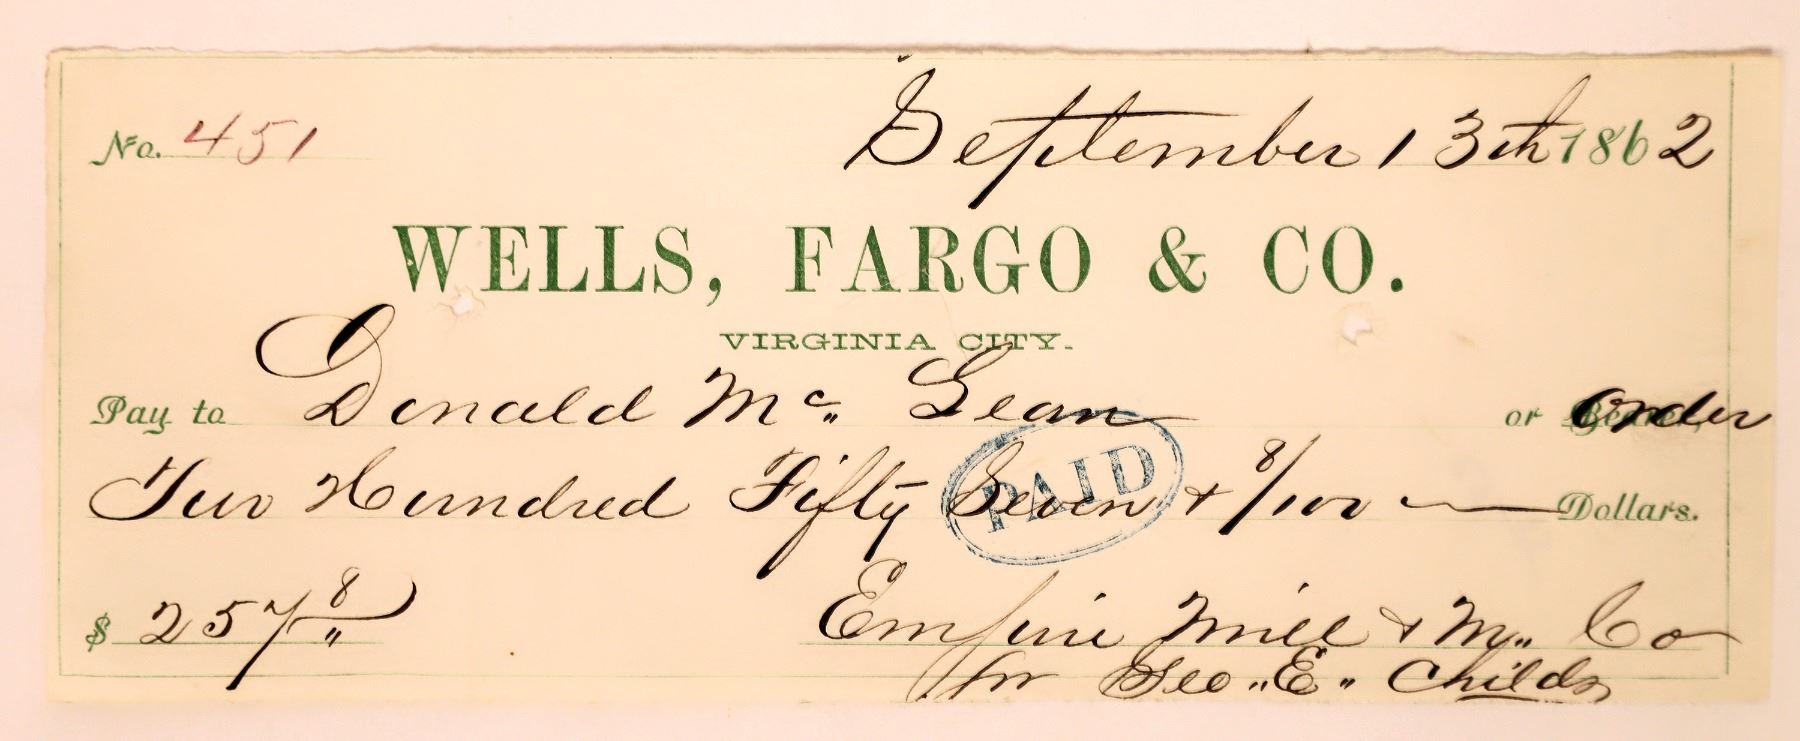 No. 451
September 13th 1862
WELLS, FARGO & CO.
VIRGINIA CITY.
Pay to Donald Mc. Lean or Order
Two Hundred Fifty Seven + 8/100 Dollars.
PAID
$ 257 8/"
Empire Mill & M. Co
for Geo. E. Childs